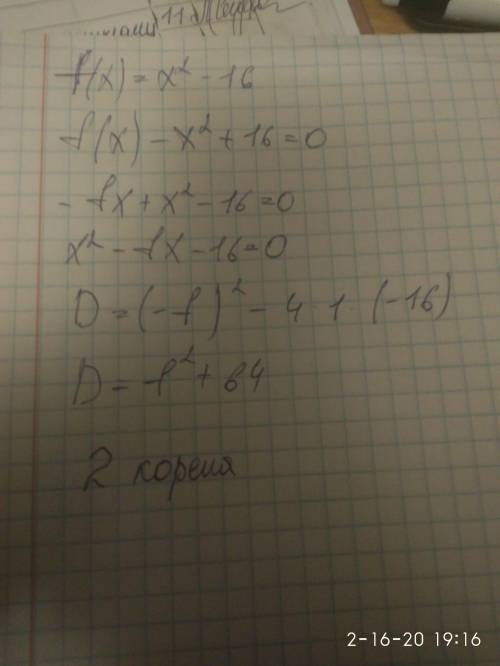 11
f(x) = x² - 16
f(x) - x² + 16 = 0
- fx + x² - 16 = 0
x² - fx - 16 = 0
D = (-f)² - 4 1 (-16)
D = f² + 64
2 корена
2-16-20 19:16